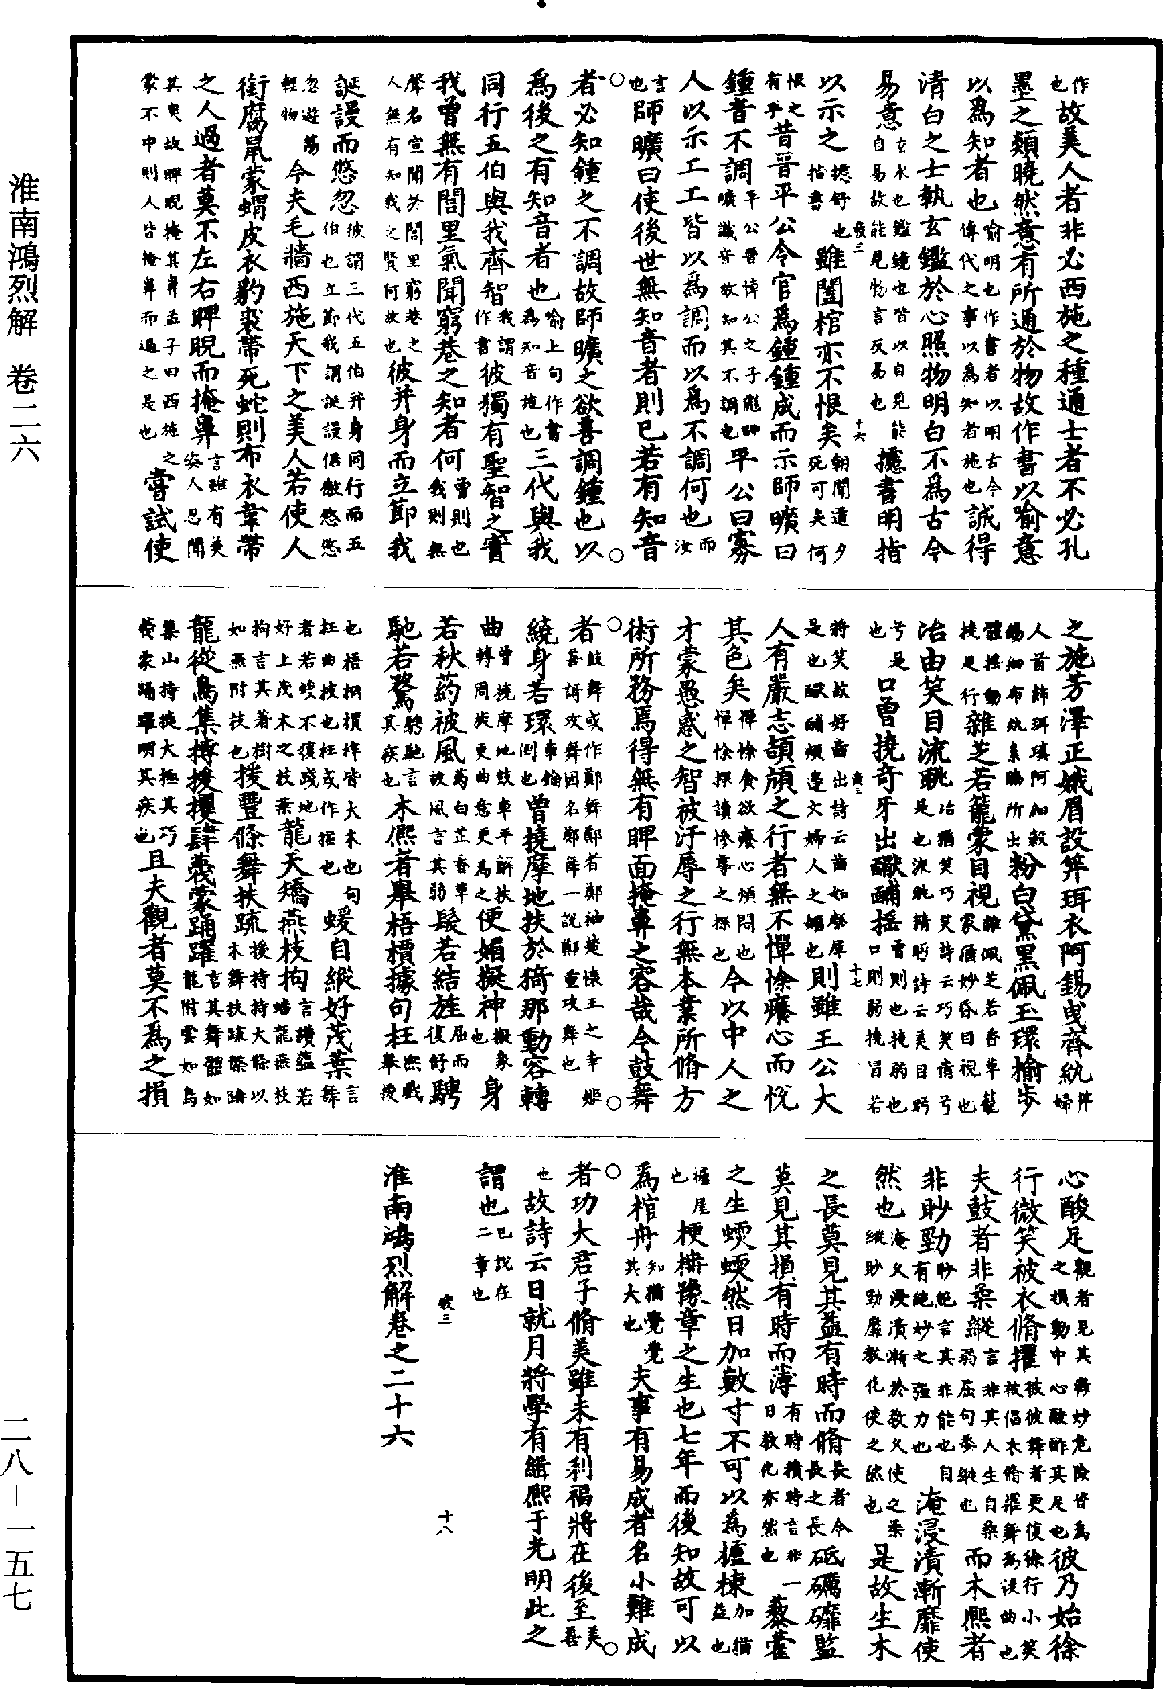 作也故美人者非必西施之種通士者不必孔
墨之類曉然意有所通於物故作書以喻意
以爲知者也喻明也作書者以明古今傳代之事以爲知者施也誠得
清白之士執玄鑑於心照物明白不爲古今
易意玄水也鑑鏡也皆以自見能自易故能見物言反易也攄書明指
以示之攄舒也指書雖闔棺亦不恨矣朝聞道夕死可矣何
恨之有乎昔晉平公令官爲鍾鍾成而示師曠曰
鍾音不調平公晉悼公之子彪師曠識音故知其不調也平公曰寡
人以示工工皆以爲調而以爲不調何也而汝
言也師曠曰使後世無知音者則已若有知音
者必知鍾之不調故師曠之欲善調鍾也以
爲後之有知音者也喻上句作書爲知音施也三代與我
同行五伯與我齊智我謂作書彼獨有聖智之實
我曾無有閭里氣聞窮巷之知者何曾則也我則無
聲名宣聞於閭里窮巷之人無有知我之賢何故也彼并身而立節我
誕謾而悠忽彼謂三代五伯并身同行而五伯也立節我謂誕謾倨傲悠悠
忽遊蕩輕物今夫毛嬙西施天下之美人若使人
銜腐鼠蒙蝟皮衣豹裘帶死蛇則布衣韋帶
之人過者莫不左右睥睨而掩鼻言雖有美姿人惡聞
其臭故睥睨掩其鼻孟子曰西施之蒙不中則人皆掩鼻而過之是也嘗試使
之施芳澤正娥眉設笄珥衣阿錫曳齊紈笄婦
人首飾珥瑱阿細縠錫細布紈素齊所出粉白黛黑佩玉環揄步
體搖動挾是行雜芝若籠蒙目視雜佩芝若香草籠蒙猶妙昏目視也
冶由笑目流眺冶猶笑巧笑詩云巧笑倩兮是也流眺精眄詩云美目眄
兮是也口曾撓奇牙出䩉酺搖曾則也撓弱也口則弱撓冒若
將笑故好齒出詩云齒如瓠犀是也䩉酺頰邊文婦人之媚也則雖王公大
人有嚴志頡頏之行者無不憚悇癢心而悅
其色矣憚悇貪欲癢心煩悶也憚悇探讀慘事之探也今以中人之
才蒙愚惑之智被汙辱之行無本業所脩方
術所務焉得無有睥面掩鼻之容哉今鼓舞
者鼓舞或作鄭舞鄭者鄭袖楚懷王之幸姬善謌攻舞因名鄭舞一說鄭重攻舞也
繞身若環車輪倒也曾撓摩地扶於猗那動容轉
曲曾撓摩地鼓車平解扶轉周旋更曲意更爲之便媚擬神擬象也身
若秋葯被風葯白芷香草被風言其弱髮若結旌屈而復舒騁
馳若騖騁馳言其疾也木熙者舉梧檟據句枉熙戲舉援
也梧桐檟梓皆大木也句枉曲枝也枉或作掘也蝯自縱好茂葉言舞
者若蝯不復踐地好上茂木之枝葉龍夭矯燕枝拘言讀蘊若蟠龍燕枝
拘言其著樹如燕附枝也援豐條舞扶疏援持持大條以木舞扶疏槃蹒
龍從鳥集搏援攫肆蔑蒙踊躍言其舞體如龍附雲如鳥
集山持援大極其巧蔑蒙踊躍明其疾也且夫觀者莫不爲之損
心酸足觀者見其舞妙危險皆爲之損動中心酸酢其足也彼乃始徐
行微笑被衣脩擢被彼舞者更復徐行小笑被倡衣脩擢舞爲後曲也
夫鼓者非柔縱弱屈句委縱也言非其人生自柔而木熙者
非眇勁眇絕言其非能也自有絕妙之強力也淹浸漬漸靡使
然也淹久浸漬漸於教久使之柔縱眇勁靡教化使之然也是故生木
之長莫見其益有時而脩長者今長之長砥礪䃺監
莫見其損有時而薄有時積時言非一日教化亦然也藜藿
之生蝡蝡然日加數寸不可以爲櫨棟加猶益也
櫨屋也梗枏豫章之生也七年而後知故可以
爲棺舟知猶覺覺其大也夫事有易成者名小難成
者功大君子脩美雖未有利福將在後至美善
也故詩云日就月將學有緝熙于光明此之
謂也已說在二章也
淮南鴻烈解卷之二十六
淮南鴻烈解 卷二六
二八－一五七
疲二
十六
疲三
十七
疲三
十八